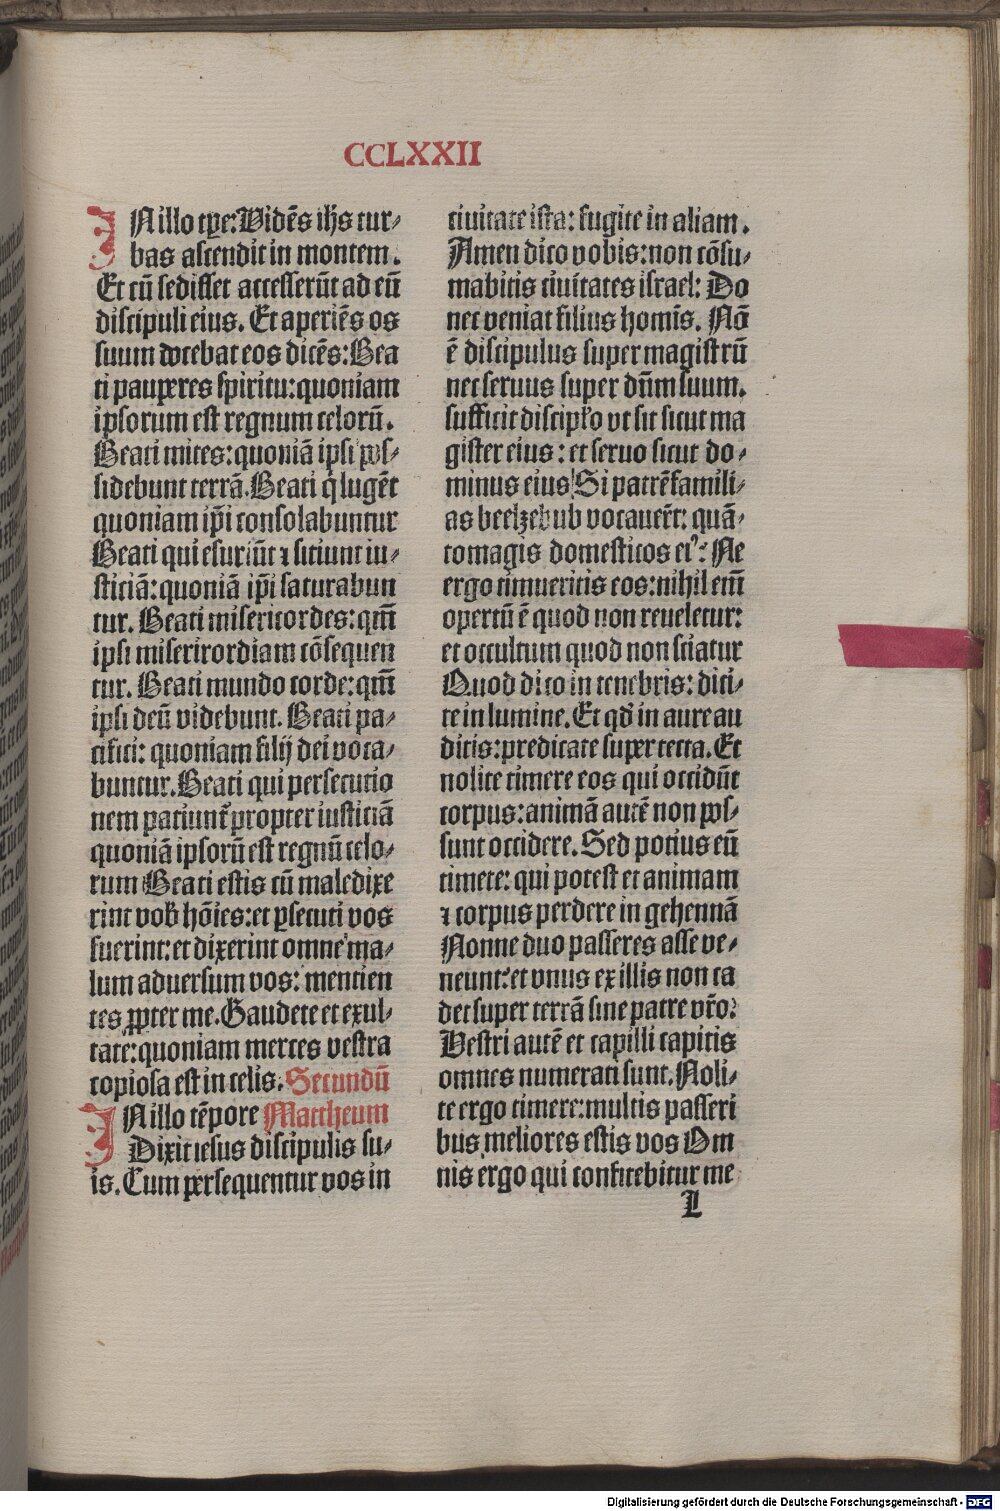 CCLXXII
IN illo tp̄e: Vidēs ih̄s tur-
bas ascendit in montem.
Et cū sedisset accesserūt ad eū
discipuli eius. Et aperiēs os
suum docebat eos dicēs: Bea
ti pauperes spiritu: quoniam
ipsorum est regnum celorū.
Beati mites: quoniā ipsi pos-
sidebunt terrā. Beati q̇ lugēt
quoniam ip̄i consolabuntur
Beati qui esuriūt ⁊ sitiunt iu-
sticiā: quoniā ip̄i saturabun
tur. Beati misericordes: qm̄
ipsi misericordiam cōsequen
tur. Beati mundo corde: qm̄
ipsi deū videbunt. Beati pa-
cifici: quoniam filij dei voca-
buntur. Beati qui persecutio
nem patiunt̄ propter iusticiā
quoniā ipsorū est regnū celo-
rum Beati estis cū maledixe
rint vob̄ hōies: et ꝑsecuti vos
fuerint: et dixerint omne ma-
lum aduersum vos: mentien
tes ꝓpter me. Gaudete et exul-
tate: quoniam merces vestra
copiosa est in celis. Secundū
IN illo tēpore Mattheum
Dixit iesus discipulis su-
is. Cum persequentur vos in
ciuitate ista: fugite in aliam.
Amen dico vobis: non cōsu-
mabitis ciuitates israel: Do
nec veniat filius homīs. Nō
ē discipulus super magistrū
nec seruus super dn̄m suum.
sufficit discipło vt sit sicut ma
gister eius: et seruo sicut do-
minus eius Si patrē famili-
as beelzebub vocauer̄t: quā-
tomagis domesticos eiꝰ: Ne
ergo timueritis eos: nihil em̄
opertū ē quod non reueletur:
et occultum quod non sciatur
Quod dico in tenebris: dici-
te in lumine. Et qd̄ in aure au
ditis: predicate super tecta. Et
nolite timere eos qui occidūt
corpus: animā autē non pos-
sunt occidere. Sed potius eū
timete: qui potest et animam
⁊ corpus perdere in gehennā
Nonne duo passeres asse ve-
neunt: et vnus ex illis non ca
det super terrā sine patre vr̄o:
Vestri autē et capilli capitis
omnes numerati sunt. Noli-
te ergo timere: multis passeri
bus meliores estis vos Om
nis ergo qui confitebitur me
L
Digitalisierung gefördert durch die Deutsche Forschungsgemeinschaft - DFG